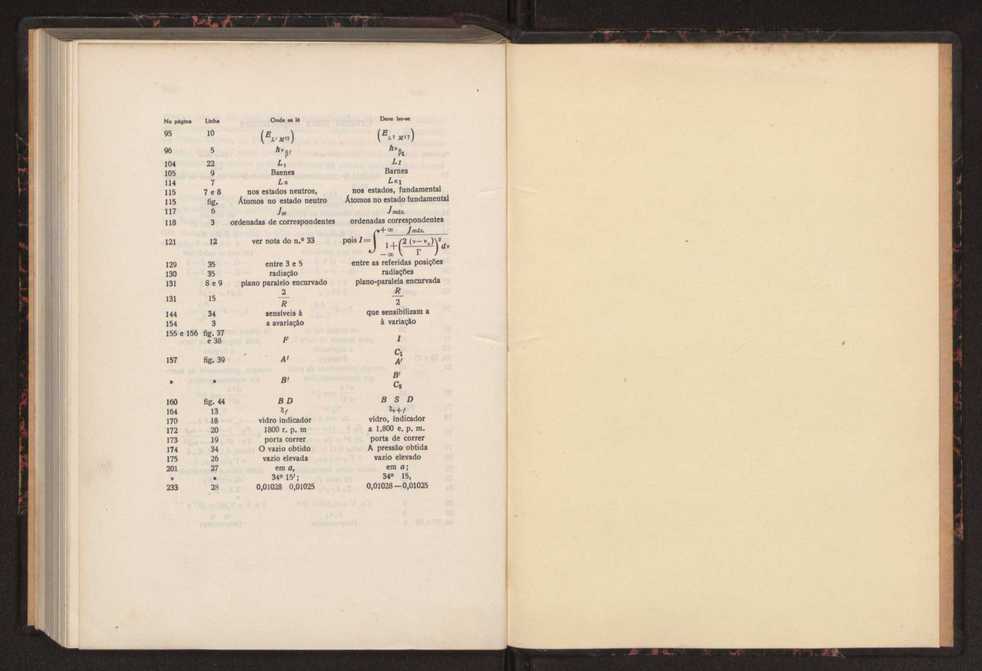 Na página Linha Onde se lê Deve ler-se
95 10 (E_{L^I M^{II}}) (E_{L^I M^{II}})
96 5 hν_{β'} hν_{β_1}
104 22 L, L_I
105 9 Baenes Barnes
114 7 Lα Lα_1
115 7 e 8 nos estados neutros, nos estados, fundamental
115 fig. Átomos no estado neutro Átomos no estado fundamental
117 6 J_m J_{máx.}
118 3 ordenadas de correspondentes ordenadas correspondentes
121 12 ver nota do n.º 33 pois I = ∫_{-∞}^{+∞} J_{máx.} / (1 + (2 (ν—ν_o) / Γ)^2) dν
129 35 entre 3 e 5 entre as referidas posições
130 35 radiação radiações
131 8 e 9 plano paraleio encurvado plano-paralela encurvada
131 15 2/R R/2
144 34 sensíveis à que sensibilizam a
154 3 a avariação à variação
155 e 156 fig. 37
e 38 I' I
157 fig. 39 A' C_1 A'
» » B' B' C_2
160 fig. 44 B D B S D
164 13
170 18 vidro indicador vidro, indicador
172 20 1800 r. p. m a 1,800 e, p. m.
173 19 porta correr porta de correr
174 34 O vazio obtido A pressão obtida
175 26 vazio elevada vazio elevado
201 27 em a, em a;
» » 34º 15'; 34º 15,
233 28 0,01028 0,01025 0,01028—0,01025